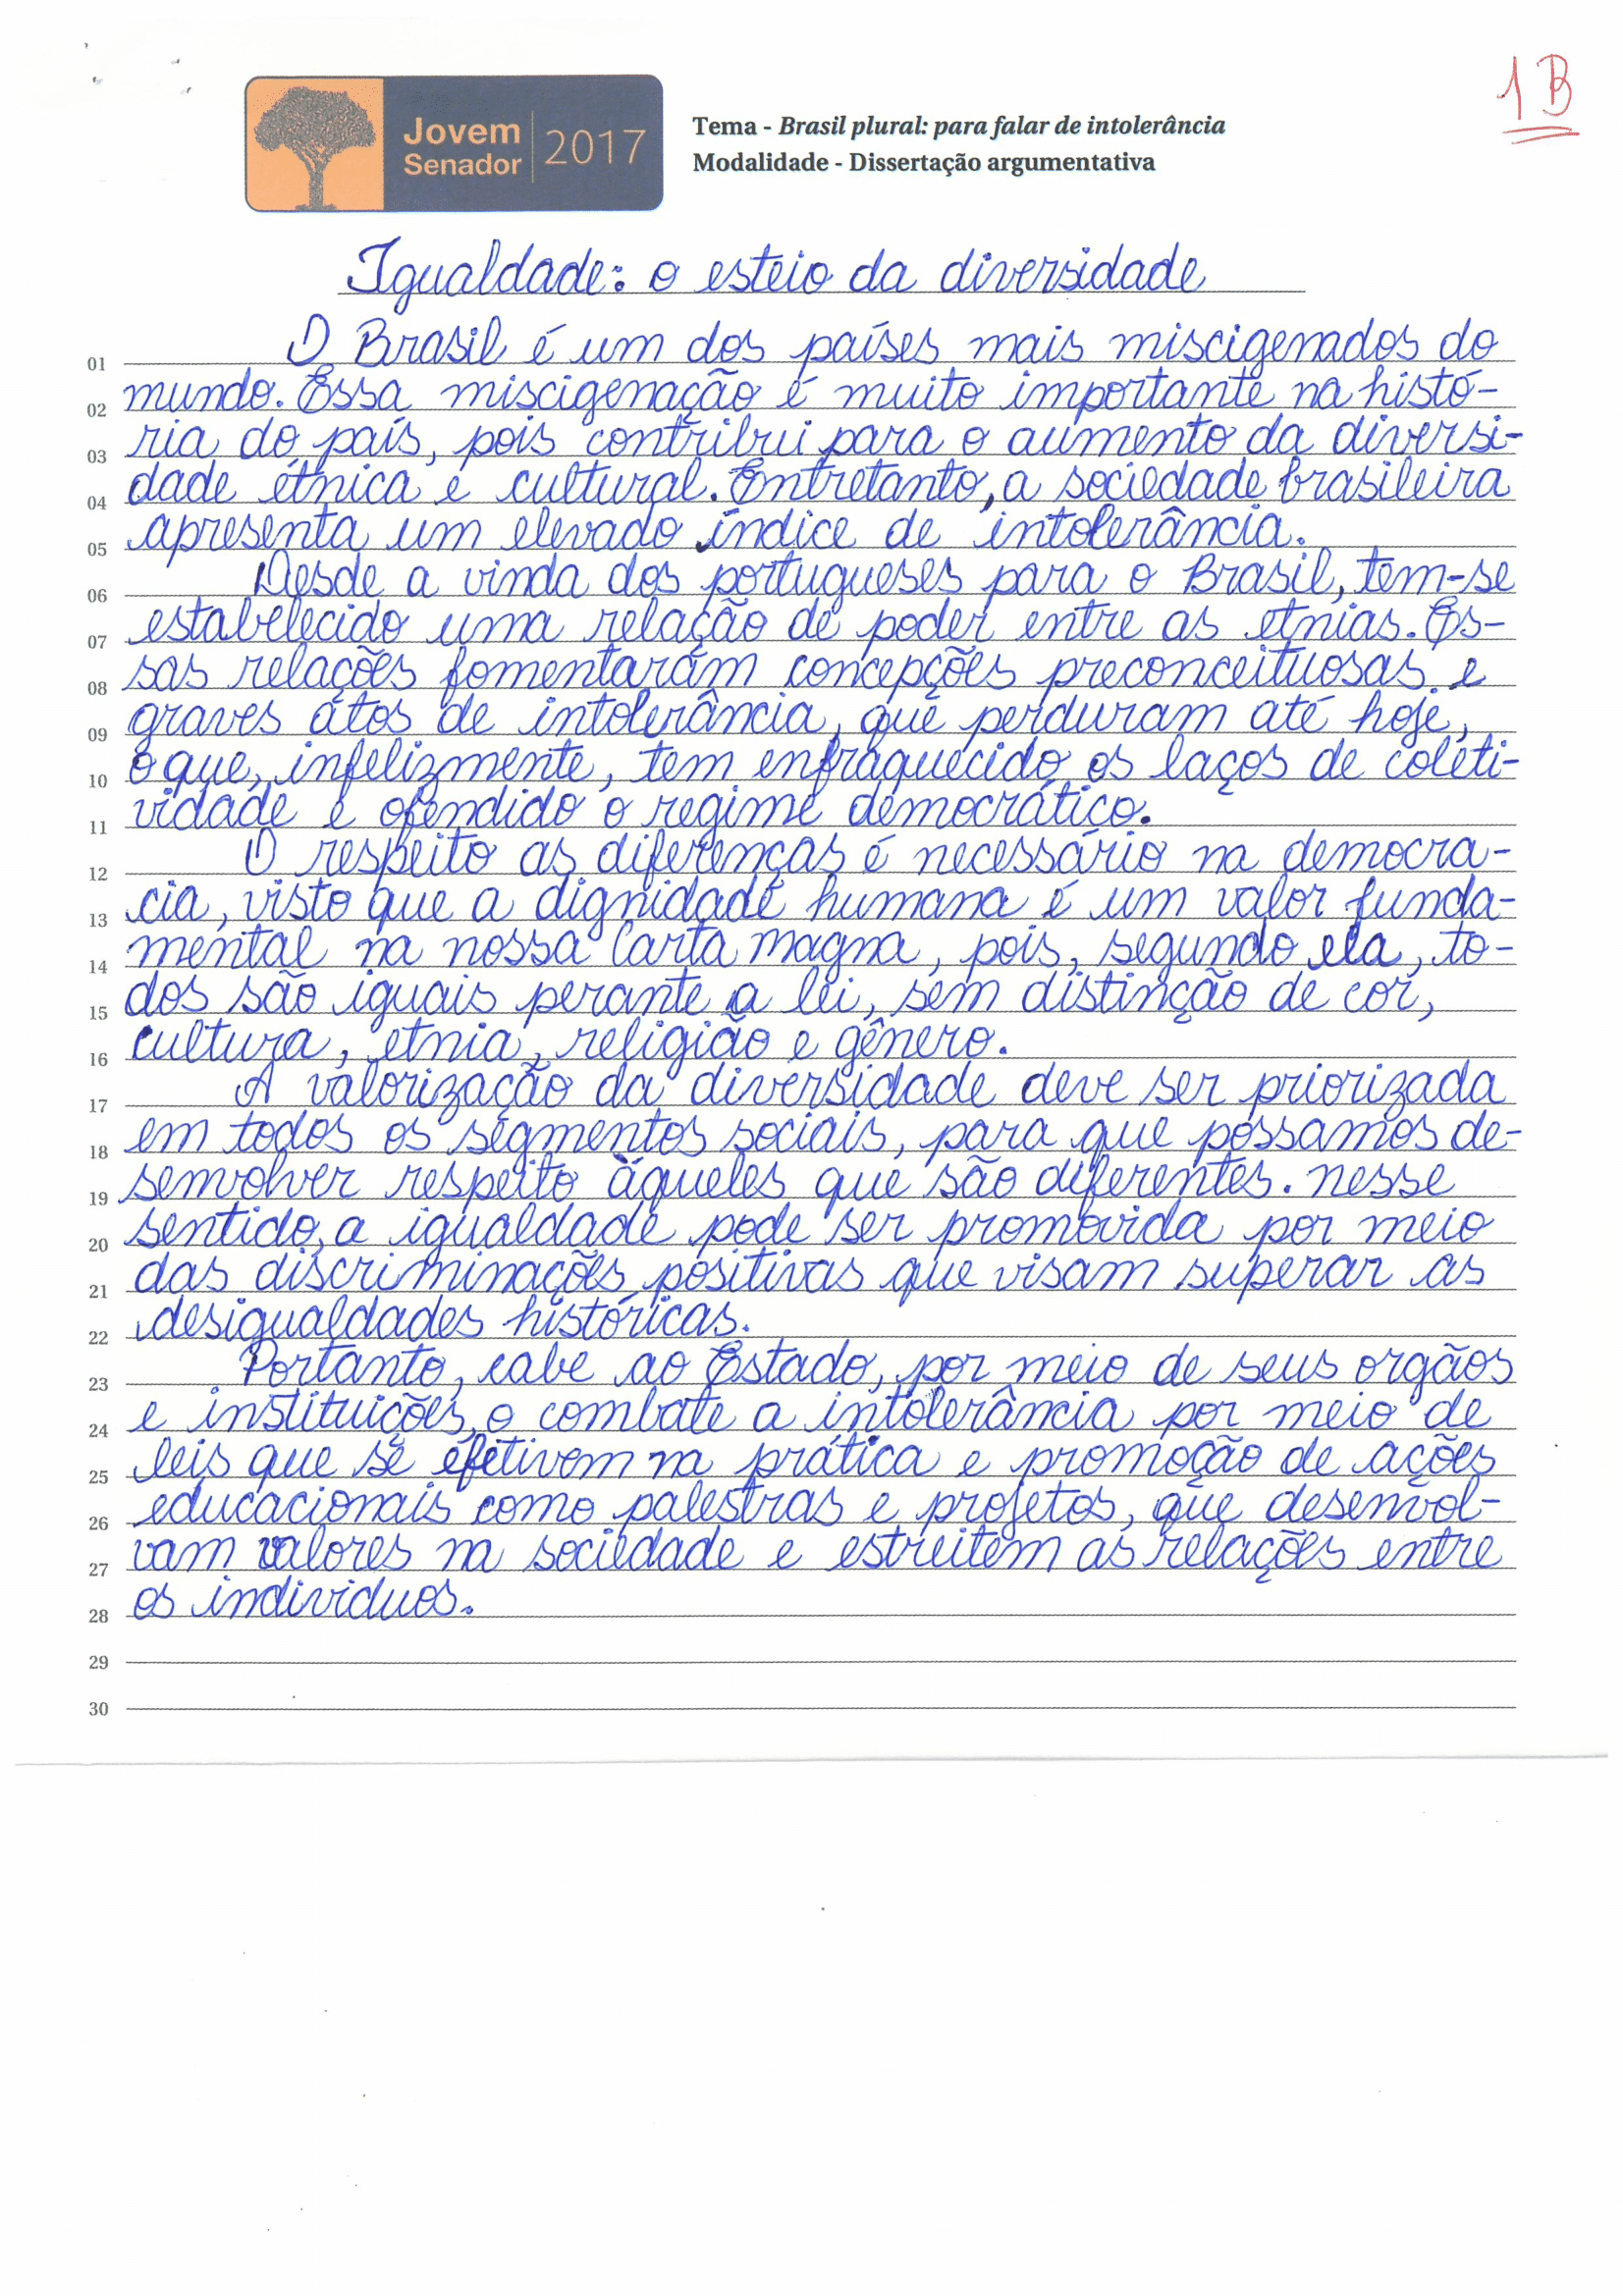 1B
Jovem
Senador
2017
Tema - Brasil plural: para falar de intolerância
Modalidade - Dissertação argumentativa
Igualdade: o esteio da diversidade
01 O Brasil é um dos países mais miscigenados do
02 mundo. Essa miscigenação é muito importante na histó-
03 ria do país, pois contribui para o aumento da diversi-
04 dade étnica e cultural. Entretanto, a sociedade brasileira
05 apresenta um elevado índice de intolerância.
06 Desde a vinda dos portugueses para o Brasil, tem-se
07 estabelecido uma relação de poder entre as etnias. Es-
08 sas relações fomentaram concepções preconceituosas e
09 graves atos de intolerância, que perduram até hoje,
10 o que, infelizmente, tem enfraquecido os laços de coleti-
11 vidade e ofendido o regime democrático.
12 O respeito as diferenças é necessário na democra-
13 cia, visto que a dignidade humana é um valor funda-
14 mental na nossa Carta magna, pois, segundo ela, to-
15 dos são iguais perante a lei, sem distinção de cor,
16 cultura, etnia, religião e gênero.
17 A valorização da diversidade deve ser priorizada
18 em todos os segmentos sociais, para que possamos de-
19 senvolver respeito àqueles que são diferentes. nesse
20 sentido, a igualdade pode ser promovida por meio
21 das discriminações positivas que visam superar as
22 desigualdades históricas.
23 Portanto, cabe ao Estado, por meio de seus orgãos
24 e instituições, o combate a intolerância por meio de
25 leis que se efetivem na prática e promoção de ações
26 educacionais como palestras e projetos, que desenvol-
27 vam valores na sociedade e estreitem as relações entre
28 os individuos.
29
30